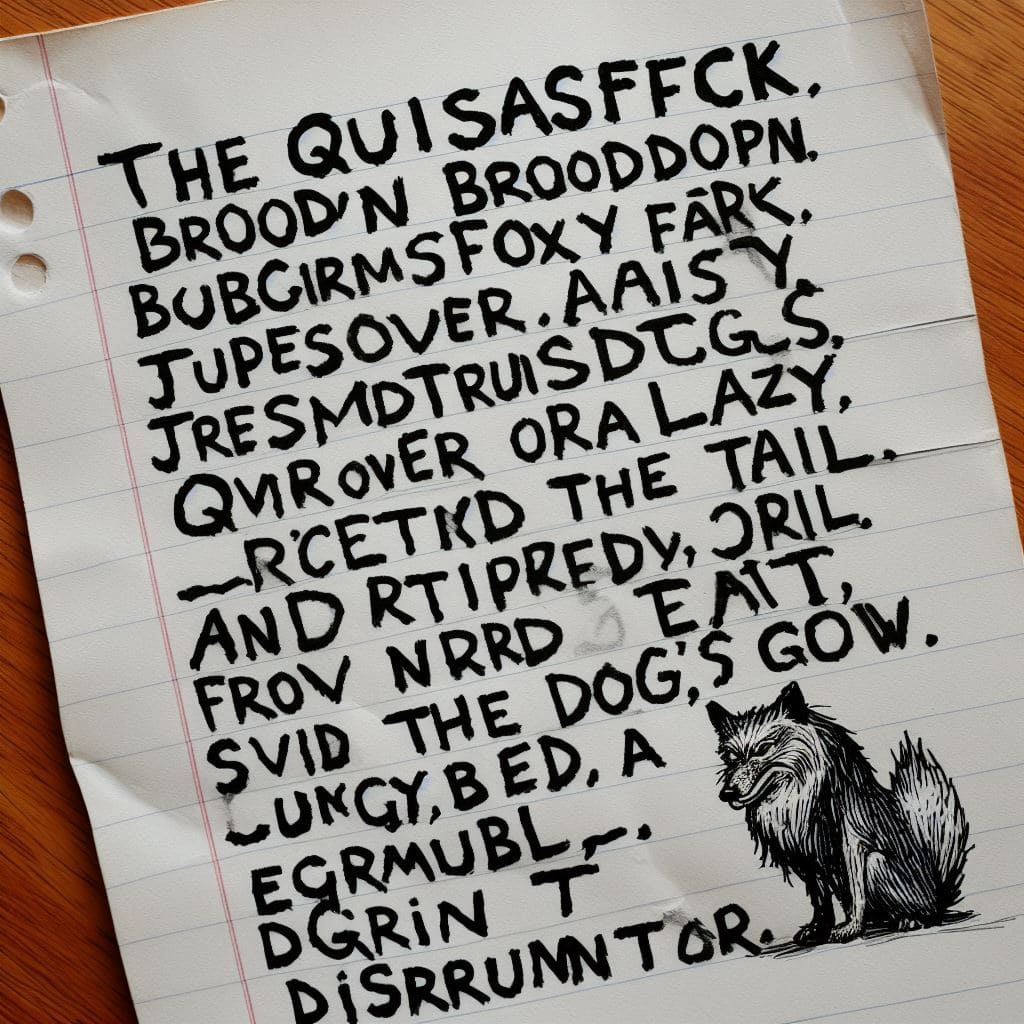 THE QUISASFFCK.
BROOD'N BROODDOPN.
BUBGIRMSFOXY FARK.
JUPESOVER. AAIS Y.
JRESMDTRUISDTCGLS.
OVER ORA LAZY,
THE TAIL.
AND RTIPREDY, JRIL.
FROV NRRD EATT,
SVID THE DOG,'S GOW.
LUNGY, BED, A
EGRMUBL
DGRIN T
DISRRUNNTOR.